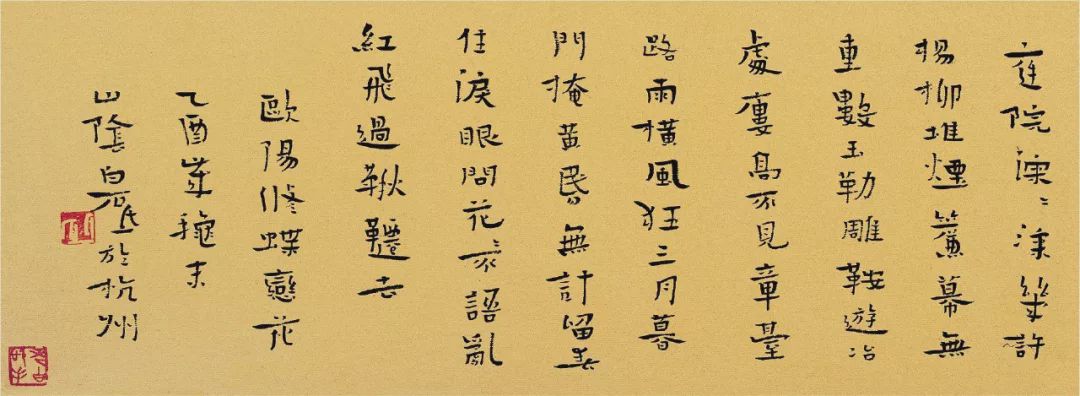 庭院深〻深幾許
楊柳堆煙簾幕無
重數玉勒雕鞍遊冶
處樓高不見章臺
路雨橫風狂三月暮
門掩黃昏無計留春
住淚眼問花〻不語亂
紅飛過鞦韆去
歐陽修蝶戀花
乙酉歲穐末
山陰白砥於杭州